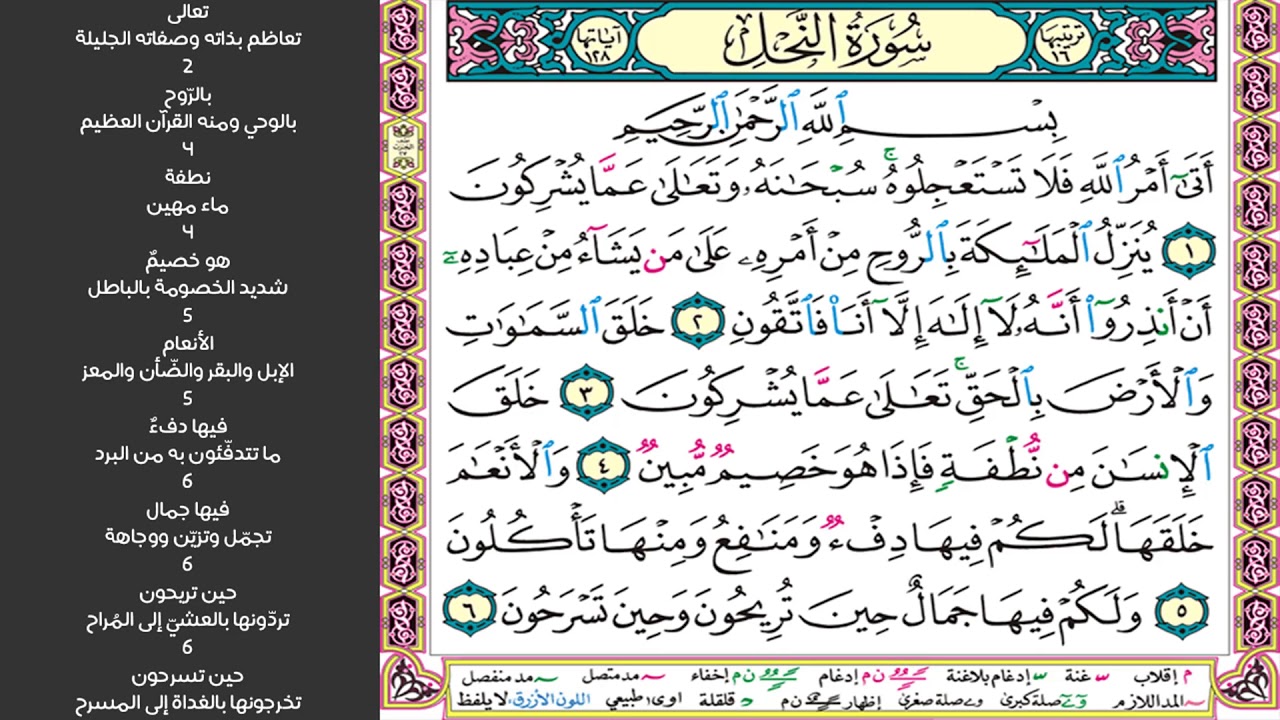 سُورَةُ النَّحْلِ
ترتيبها ١٦
آياتها ١٢٨
بِسْمِ ٱللَّهِ ٱلرَّحْمَٰنِ ٱلرَّحِيمِ
أَتَىٰٓ أَمْرُ ٱللَّهِ فَلَا تَسْتَعْجِلُوهُ ۚ سُبْحَٰنَهُۥ وَتَعَٰلَىٰ عَمَّا يُشْرِكُونَ
١ يُنَزِّلُ ٱلْمَلَٰٓئِكَةَ بِٱلرُّوحِ مِنْ أَمْرِهِۦ عَلَىٰ مَن يَشَآءُ مِنْ عِبَادِهِۦٓ
أَنْ أَنذِرُوٓا۟ أَنَّهُۥ لَآ إِلَٰهَ إِلَّآ أَنَا۠ فَٱتَّقُونِ ٢ خَلَقَ ٱلسَّمَٰوَٰتِ
وَٱلْأَرْضَ بِٱلْحَقِّ ۚ تَعَٰلَىٰ عَمَّا يُشْرِكُونَ ٣ خَلَقَ
ٱلْإِنسَٰنَ مِن نُّطْفَةٍ فَإِذَا هُوَ خَصِيمٌ مُّبِينٌ ٤ وَٱلْأَنْعَٰمَ
خَلَقَهَا ۗ لَكُمْ فِيهَا دِفْءٌ وَمَنَٰفِعُ وَمِنْهَا تَأْكُلُونَ
٥ وَلَكُمْ فِيهَا جَمَالٌ حِينَ تُرِيحُونَ وَحِينَ تَسْرَحُونَ ٦
م إقلاب س غنة س إدغام بلاغنة ن م إدغام ن م إخفاء مد متصل مد منفصل
المد اللازم و ے صلة كبرى و ے صلة صغرى إظهار ن م د قلقلة ا و ى طبيعي اللون الأزرق لا يلفظ
تعالى
تعاظم بذاته وصفاته الجليلة
2
بالرّوح
بالوحي ومنه القرآن العظيم
4
نطفة
ماء مهين
4
هو خصيمٌ
شديد الخصومة بالباطل
5
الأنعام
الإبل والبقر والضّأن والمعز
5
فيها دفءٌ
ما تتدفّئون به من البرد
6
فيها جمال
تجمّل وتزيّن ووجاهة
6
حين تريحون
تردّونها بالعشيّ إلى المُراح
6
حين تسرحون
تخرجونها بالغداة إلى المسرح